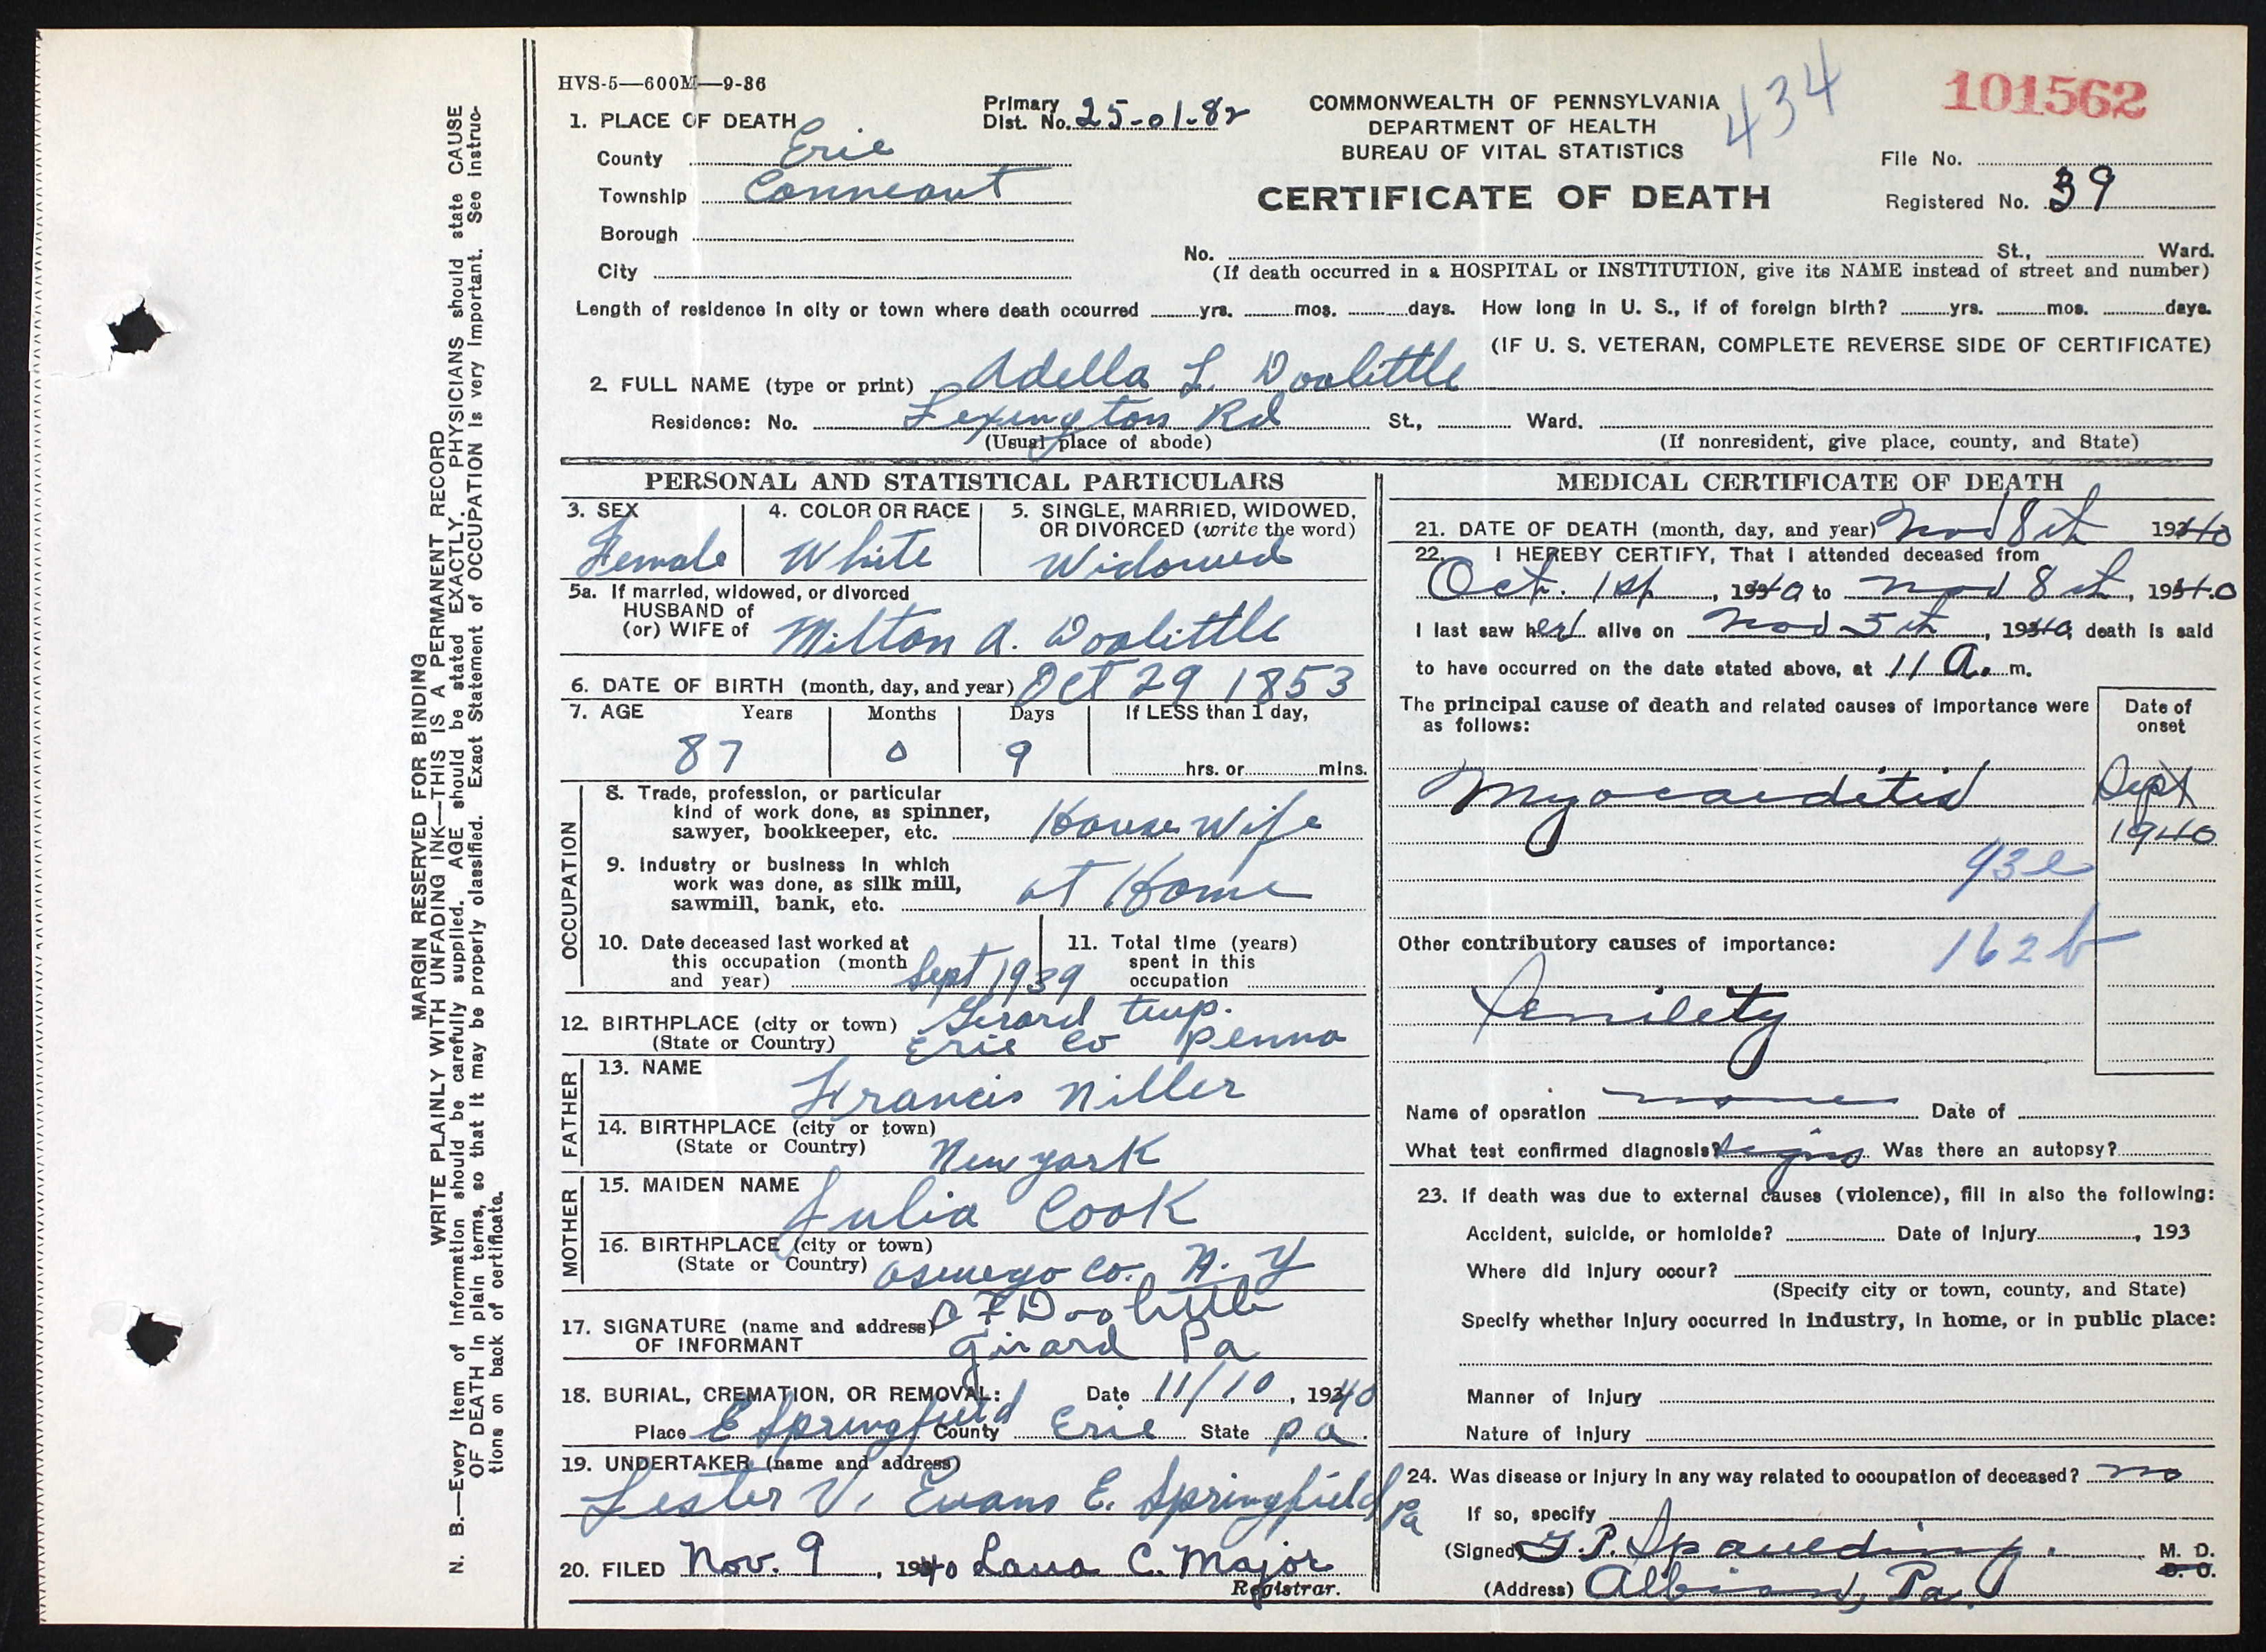 HVS-5—600M—9-36
434
101562
COMMONWEALTH OF PENNSYLVANIA
DEPARTMENT OF HEALTH
BUREAU OF VITAL STATISTICS
CERTIFICATE OF DEATH
Primary Dist. No. 25-01-82
File No.
Registered No. 39
1. PLACE OF DEATH
County Erie
Township Conneaut
Borough
City
No. St., Ward.
(If death occurred in a HOSPITAL or INSTITUTION, give its NAME instead of street and number)
Length of residence in city or town where death occurred yrs. mos. days. How long in U. S., if of foreign birth? yrs. mos. days.
(IF U. S. VETERAN, COMPLETE REVERSE SIDE OF CERTIFICATE)
2. FULL NAME (type or print) Adella L. Doolittle
Residence: No. Lexington Rd St., Ward.
(Usual place of abode) (If nonresident, give place, county, and State)
PERSONAL AND STATISTICAL PARTICULARS
3. SEX
Female
4. COLOR OR RACE
White
5. SINGLE, MARRIED, WIDOWED,
OR DIVORCED (write the word)
Widowed
5a. If married, widowed, or divorced
HUSBAND of
(or) WIFE of Milton A. Doolittle
6. DATE OF BIRTH (month, day, and year) Oct 29 1853
7. AGE Years Months Days If LESS than 1 day,
87 0 9 hrs. or mins.
OCCUPATION
8. Trade, profession, or particular
kind of work done, as spinner,
sawyer, bookkeeper, etc. House Wife
9. Industry or business in which
work was done, as silk mill,
sawmill, bank, etc. at Home
10. Date deceased last worked at
this occupation (month
and year) Sept 1939
11. Total time (years)
spent in this
occupation
12. BIRTHPLACE (city or town) Girard twp.
(State or Country) Erie Co Penna
FATHER
13. NAME
Francis Niller
14. BIRTHPLACE (city or town)
(State or Country) New york
MOTHER
15. MAIDEN NAME
Julia Cook
16. BIRTHPLACE (city or town)
(State or Country) Oswego Co. N. Y
17. SIGNATURE (name and address) F Doolittle
OF INFORMANT Girard Pa
18. BURIAL, CREMATION, OR REMOVAL: Date 11/10, 1940
Place E Springfield County Erie State Pa.
19. UNDERTAKER (name and address)
Lester V. Evans E. Springfield Pa
20. FILED Nov. 9, 1940 Laura C. Major
Registrar.
MEDICAL CERTIFICATE OF DEATH
21. DATE OF DEATH (month, day, and year) Nov 8th 1940
22. I HEREBY CERTIFY, That I attended deceased from
Oct. 1st, 1940 to Nov 8th, 1940
I last saw her alive on Nov 5th, 1940, death is said
to have occurred on the date stated above, at 11 A. m.
The principal cause of death and related causes of importance were
as follows:
Date of
onset
Myocarditis Sept
1940
93e
Other contributory causes of importance:
162b
Senility
Name of operation none Date of
What test confirmed diagnosis? signs Was there an autopsy?
23. If death was due to external causes (violence), fill in also the following:
Accident, suicide, or homicide? Date of injury, 193
Where did injury occur?
(Specify city or town, county, and State)
Specify whether injury occurred in industry, in home, or in public place:
Manner of injury
Nature of injury
24. Was disease or injury in any way related to occupation of deceased? no
If so, specify
(Signed) G. P. Spaulding. M. D.
D. O.
(Address) Albion, Pa.
MARGIN RESERVED FOR BINDING
WRITE PLAINLY WITH UNFADING INK—THIS IS A PERMANENT RECORD
N. B.—Every item of information should be carefully supplied. AGE should be stated EXACTLY. PHYSICIANS should state CAUSE
OF DEATH in plain terms, so that it may be properly classified. Exact Statement of OCCUPATION is very important. See instruc-
tions on back of certificate.